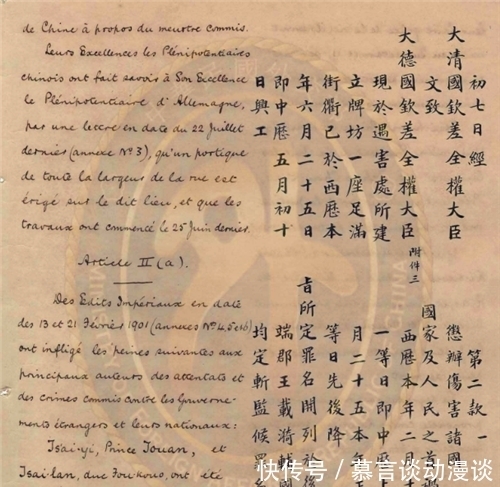 de Chine à propos du meurtre commis.
Leurs Excellences les Plénipotentiaires
chinois ont fait savoir à Son Excellence
le Plénipotentiaire d'Allemagne,
par une lettre en date du 22 juillet
dernier (annexe Nº 3), qu'un portique
de toute la largeur de la rue est
érigé sur le dit lieu, et que les
travaux ont commencé le 25 juin dernier.
Article II (a).
Des Edits Impériaux en date
des 13 et 21 Février 1901 (annexes Nos 4, 5 et 6)
ont infligé les peines suivantes aux
principaux auteurs des attentats et
des crimes commis contre les Gouverne-
ments étrangers et leurs nationaux:
Tsai-yi, Prince Touan, et
Tsai-lan, duc Fou-kouo, ont été
初七日經
大清國欽差全權大臣
文致
大德國欽差全權大臣 附件三
現於遇害處所建
立牌坊一座足滿
街衢已於西歷本
年六月二十五日
即中歷五月初十
日興工
第二款 一
懲辦傷害諸國
國家及人民之首
西歷本年二月
一等日即中歷
月二十五本年
等日先後降
旨所定罪名開列於
端郡王載漪
均定斬監候
CHINA
快传号/慕言谈动漫谈